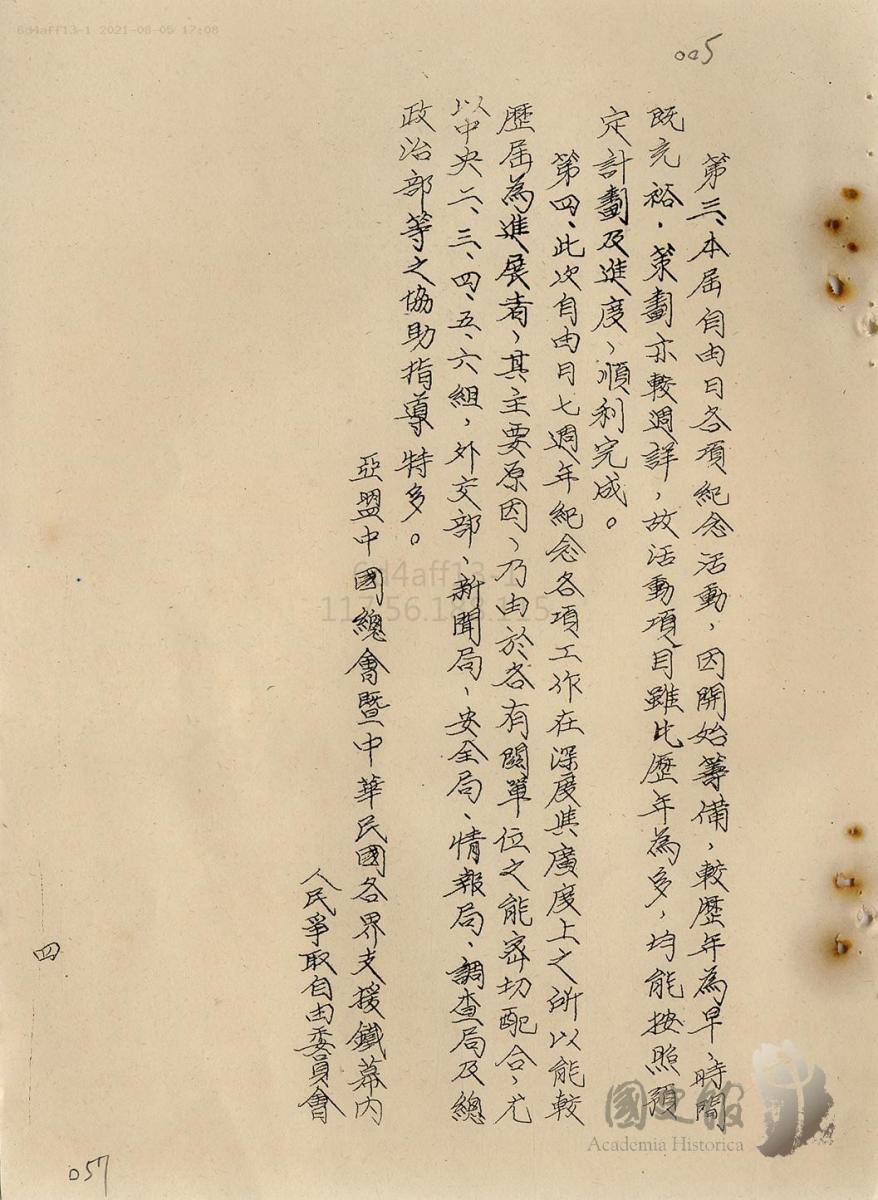 6d4aff13-1 2021-08-05 17:08
005
第三、本屆自由日各項紀念活動，因開始籌備，較歷年為早、時間
既充裕，策劃亦較週詳，故活動項目雖比歷年為多，均能按照預
定計劃及進度、順利完成。
第四、此次自由日七週年紀念各項工作在深度與廣度上之所以能較
歷屆為進展者，其主要原因、乃由於各有關單位之能密切配合、尤
以中央二、三、四、五、六組，外交部、新聞局、安全局、情報局、調查局及總
政治部等之協助指導特多。
亞盟中國總會暨中華民國各界支援鐵幕內
人民爭取自由委員會
四
057
6d4aff13-1
國史館
Academia Historica